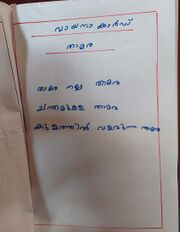 വായനാകാർഡ്
താമര
താമര നല്ല താമര
ചന്തമുള്ള താമര
കുളത്തിൽ വളരുന്ന താമര